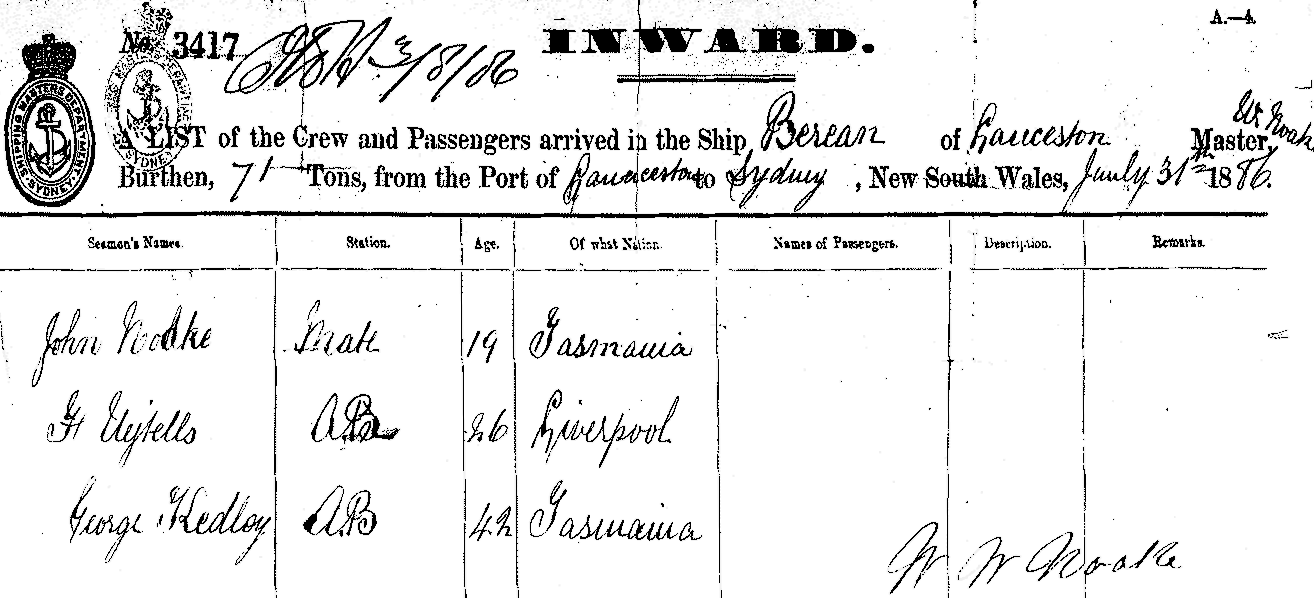 A.—4.
No. 3417 3/8/86 INWARD.
SHIPPING MASTERS DEPARTMENT. SYDNEY
A LIST of the Crew and Passengers arrived in the Ship Berean of Lauceston Master, W. Noak
Burthen, 71 Tons, from the Port of to Sydney, New South Wales, 31st 1886.
Seamen's Names. Station. Age. Of what Nation. Names of Passengers. Description. Remarks.
John Noake Mate 19 Tasmania
A.B. 26 Liverpool
George A.B 42 Tasmania
W W Noake